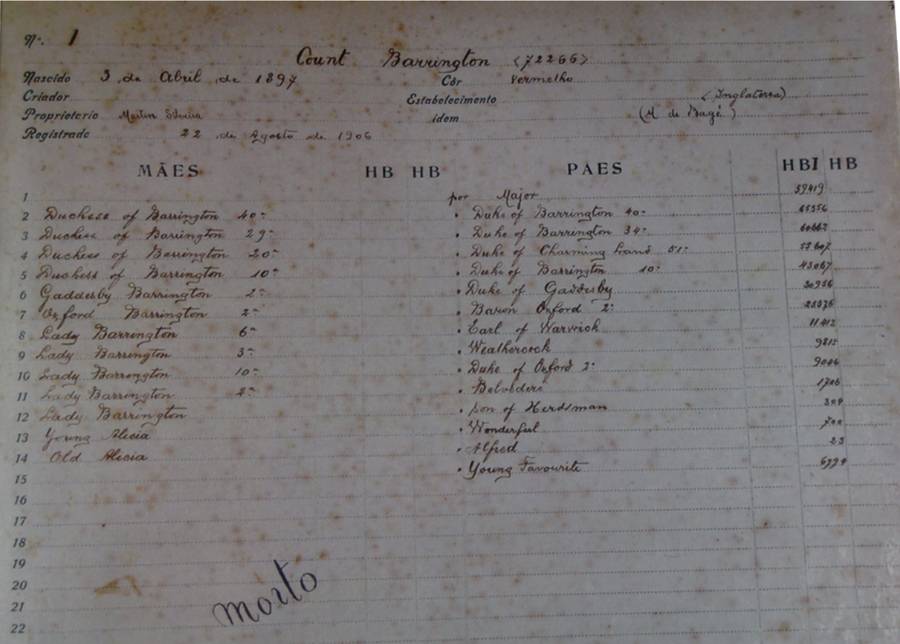 Nº. 1
Count Barrington (72266)
Nascido 3 de Abril de 1897 Côr Vermelho
Criador Estabelecimento (Inglaterra)
Proprietario Martin Silveira idem (M. de Bagé)
Registrado 22 de Agosto de 1906
MÃES HB HB PAES HBI HB
1 por Major 59419
2 Duchess of Barrington 40ª " Duke of Barrington 40º
3 Duchess of Barrington 29ª " Duke of Barrington 34º
4 Duchess of Barrington 20ª " Duke of Charming Land 51º
5 Duchess of Barrington 10ª " Duke of Barrington 10º 43067
6 Gaddesby Barrington 2ª " Duke of Gaddesby 30956
7 Oxford Barrington 2ª " Baron Oxford 2º
8 Lady Barrington 6ª " Earl of Warwick 11412
9 Lady Barrington 3ª " Weathercock 9815
10 Lady Barrington 10ª " Duke of Oxford 2º 9046
11 Lady Barrington " Belvedere 1706
12 Lady Barrington " son of Herdsman 304
13 Young Alicia " Wonderful 700
14 Old Alicia " Alfred 23
15 " Young Favourite 6994
16
17
18
19
20
21
22
morto